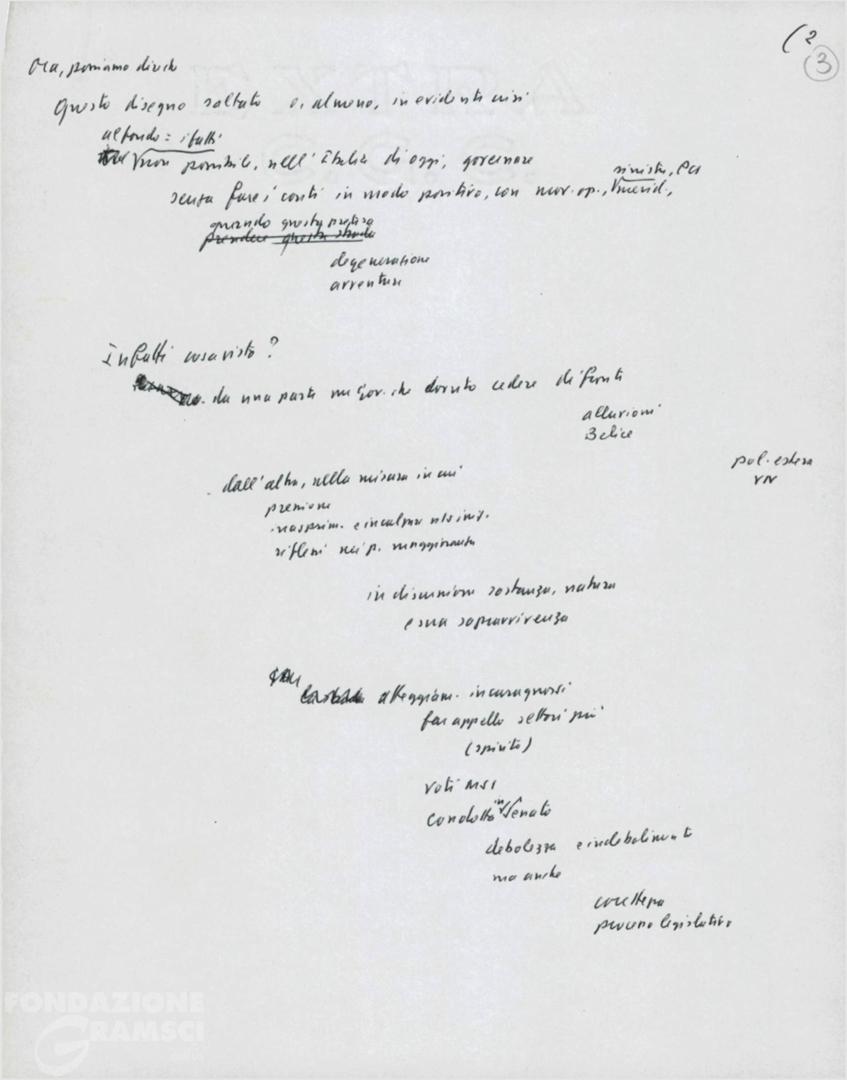 (2
3
Ora, possiamo dire che
Questo disegno saltato o, almeno, in evidente crisi
al fondo = i fatti
non possibile, nell'Italia di oggi, governare
sinistra, PCI
senza fare i conti in modo positivo, con mov. op., merid.,
quando questa pretesa
prendere questa strada
degenerazione
avventure
Infatti cosa visto?
da una parte un gov. che dovuto cedere di fronte
alluvioni
Belice
pol. estera
VN
dall'altra, nella misura in cui
pressione
inasprim. e
riflessi nei p. maggioranza
in discussione sostanza, natura
e sua sopravvivenza
atteggiam. incarognirsi
far appello settori più
(spirito)
voti MSI
condotta in Senato
debolezza e indebolimento
ma anche
correttezza
processo legislativo
FONDAZIONE
GRAMSCI